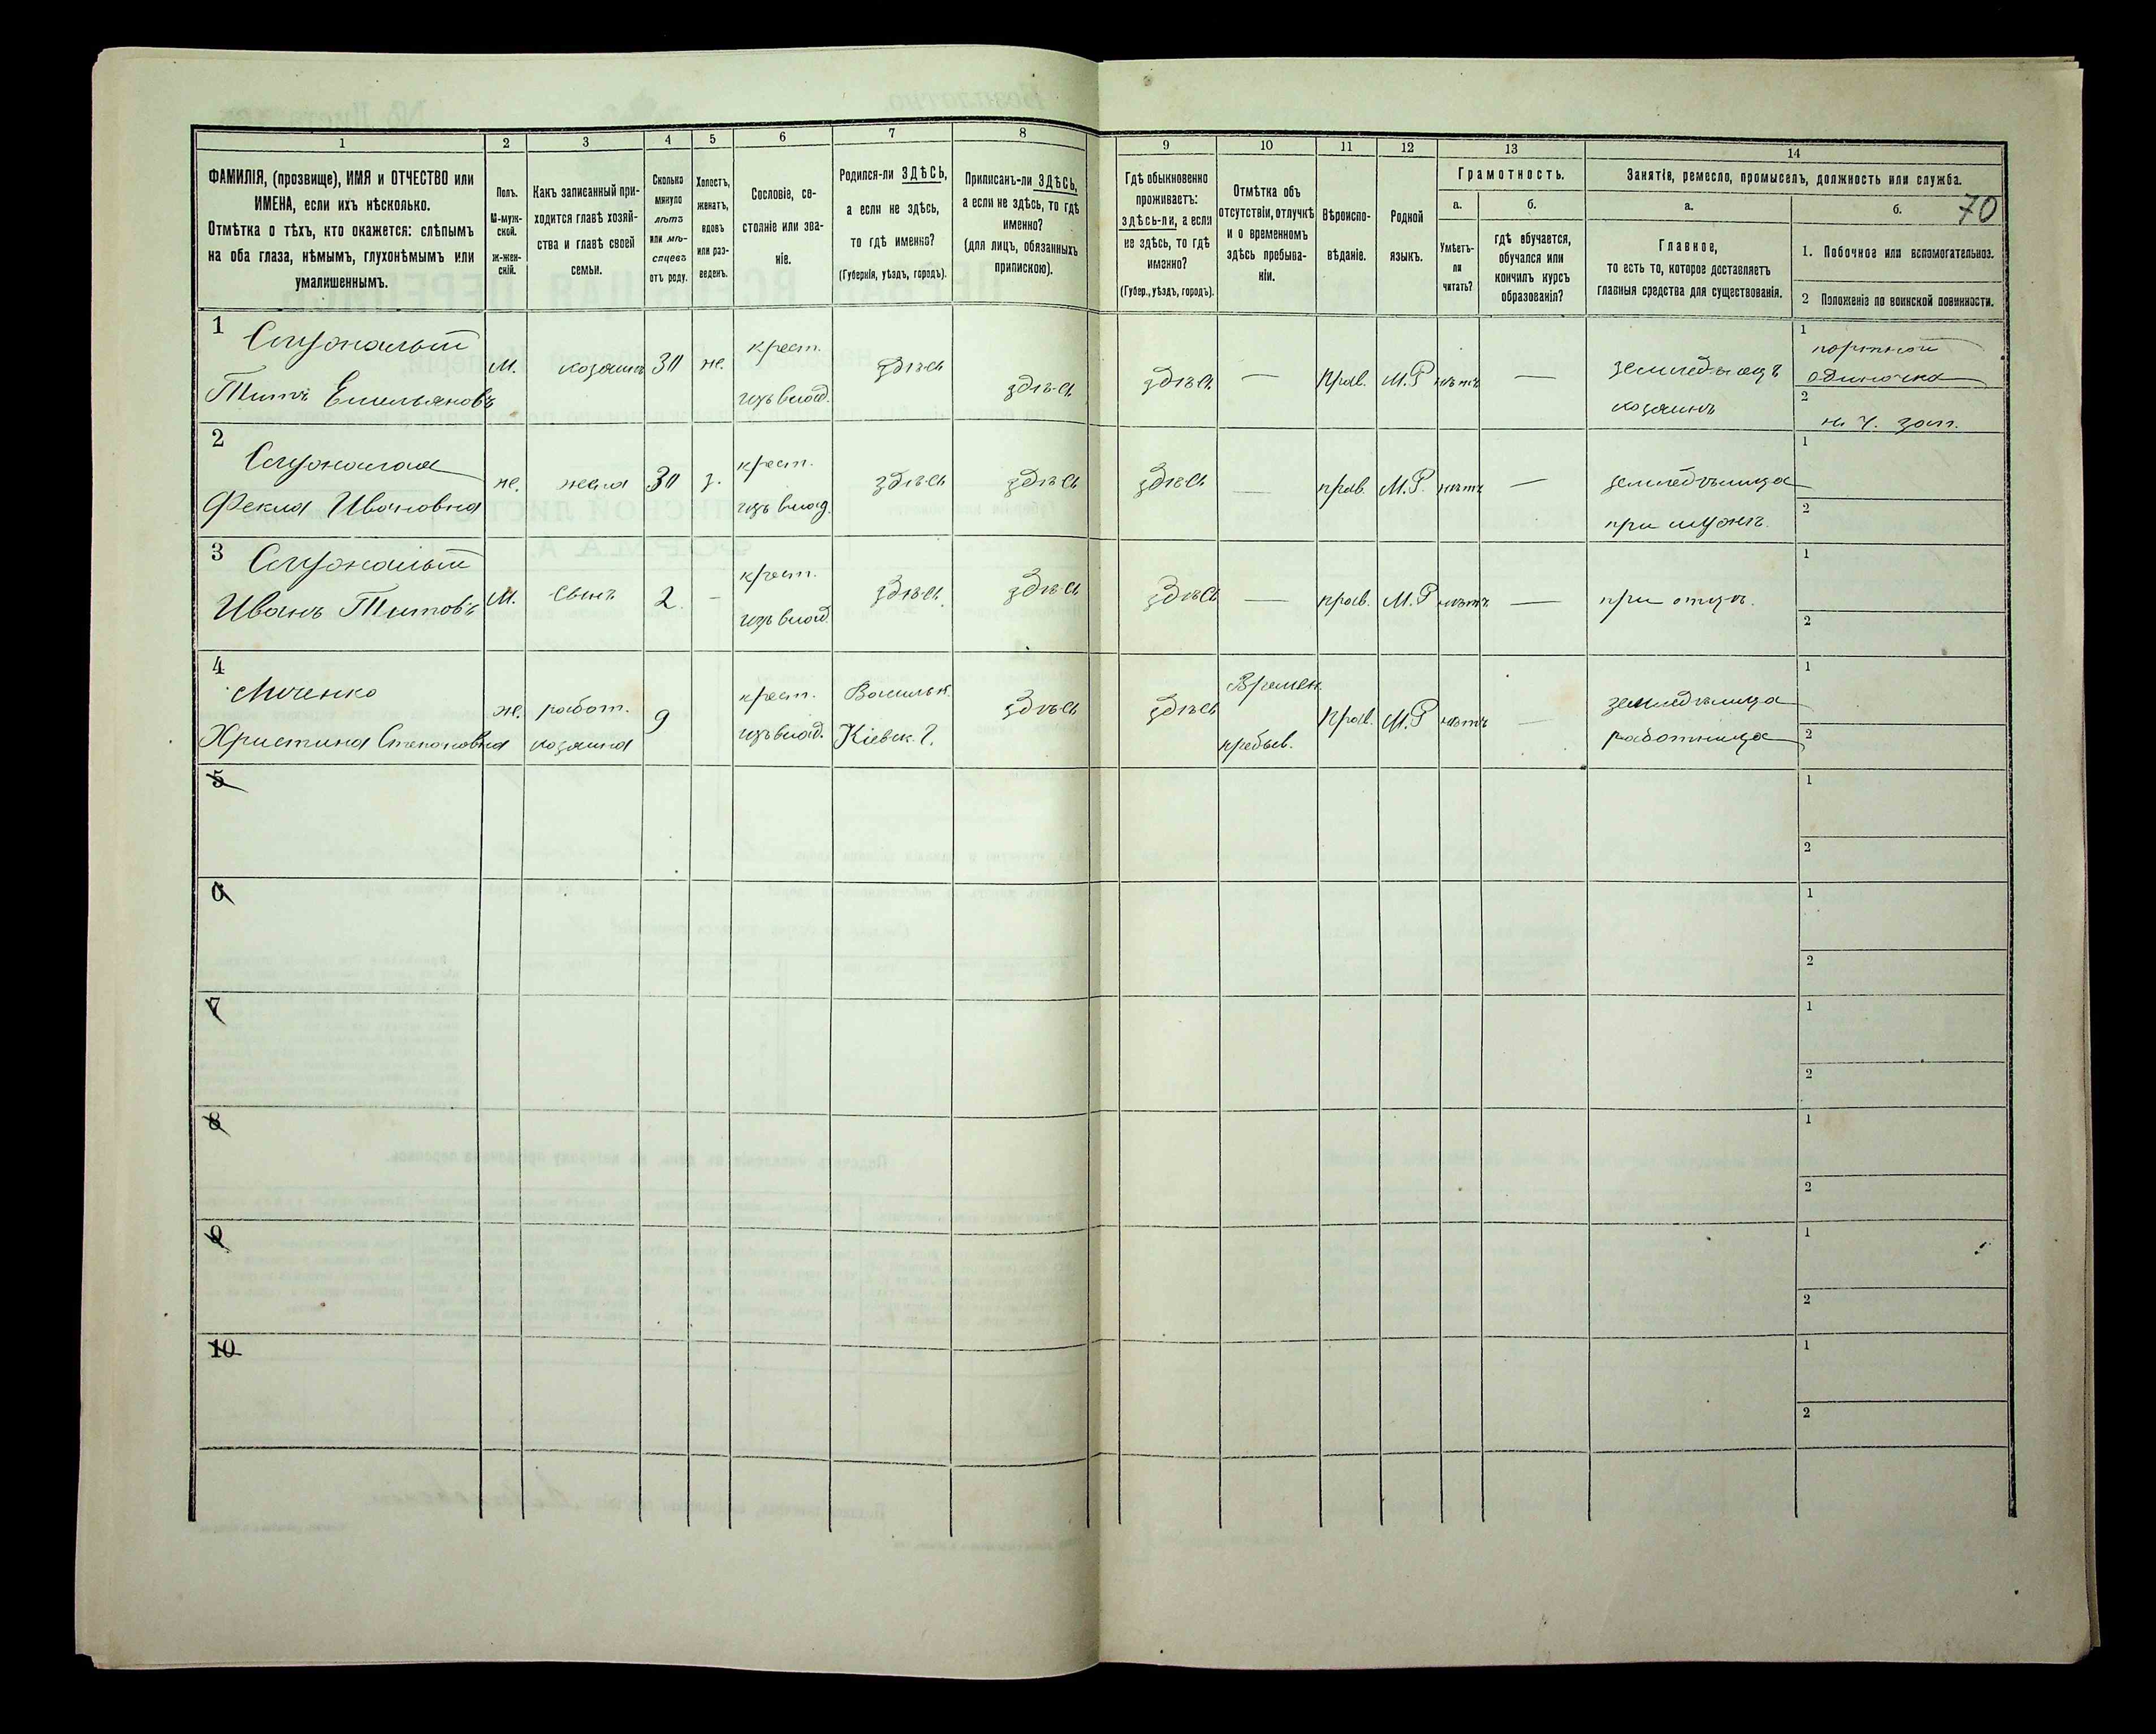 1
2
3
4
5
6
7
8
9
10
11
12
13
14
ФАМИЛІЯ, (прозвище), ИМЯ и ОТЧЕСТВО или
ИМЕНА, если ихъ нѣсколько.
Отмѣтка о тѣхъ, кто окажется: слѣпымъ
на оба глаза, нѣмымъ, глухонѣмымъ или
умалишеннымъ.
Полъ.
М-муж-
ской.
Ж-жен-
скій.
Какъ записанный при-
ходится главѣ хозяй-
ства и главѣ своей
семьи.
Сколько
минуло
лѣтъ
или мѣ-
сяцевъ
отъ роду.
Холостъ,
женатъ,
вдовъ
или раз-
веденъ.
Сословіе, со-
стояніе или зва-
ніе.
Родился-ли ЗДѢСЬ,
а если не здѣсь,
то гдѣ именно?
(Губернія, уѣздъ, городъ).
Приписанъ-ли ЗДѢСЬ,
а если не здѣсь, то гдѣ
именно?
(для лицъ, обязанныхъ
припискою).
Гдѣ обыкновенно
проживаетъ:
здѣсь-ли, а если
не здѣсь, то гдѣ
именно?
(Губер., уѣздъ, городъ).
Отмѣтка объ
отсутствіи, отлучкѣ
и о временномъ
здѣсь пребыва-
ніи.
Вѣроиспо-
вѣданіе.
Родной
языкъ.
Грамотность.
а.
Умѣетъ-
ли
читать?
б.
гдѣ обучается,
обучался или
кончилъ курсъ
образованія?
Занятіе, ремесло, промыселъ, должность или служба.
70
а.
Главное,
то есть то, которое доставляетъ
главныя средства для существованія.
б.
1. Побочное или вспомогательное.
2 Положеніе по воинской повинности.
1
Титъ Емельяновъ
М. хозяинъ 30 ж.
крест.
изъ влад.
здѣсь здѣсь здѣсь — прав. М.Р нѣтъ —
земледѣлецъ
хозяинъ
1
портной
одиночка
2
2
Фекла Ивановна
ж. жена 30 з.
крест.
изъ влад.
здѣсь здѣсь здѣсь — прав. М.Р. нѣтъ —
земледѣлица
при мужѣ.
1
2
3
Иванъ Титовъ
М. сынъ 2 -
крест.
изъ влад.
здѣсь здѣсь здѣсь — прав. М.Р нѣтъ — при отцѣ.
1
2
4
Христина Степановна
ж.
работ.
хозяина
9
крест.
изъ влад.
Васильк.
Кіевск. г.
здѣсь здѣсь
Времен.
пребыв.
прав. М.Р нѣтъ —
земледѣлица
работница
1
2
5
1
2
6
1
2
7
1
2
8
1
2
9
1
2
10
1
2